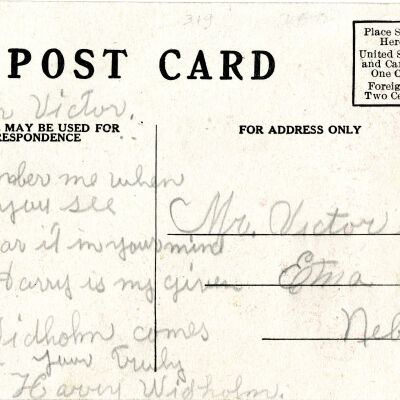 319
POST CARD
Place S
Here
United S
and Can
One C
Foreig
Two Ce
r Victor.
MAY BE USED FOR
RESPONDENCE
FOR ADDRESS ONLY
mber me when
you see
ar it in your mind
Harry is my given
Widholm comes
Your Truly
Harry Widholm.
Mr. Victor
Etna
Neb